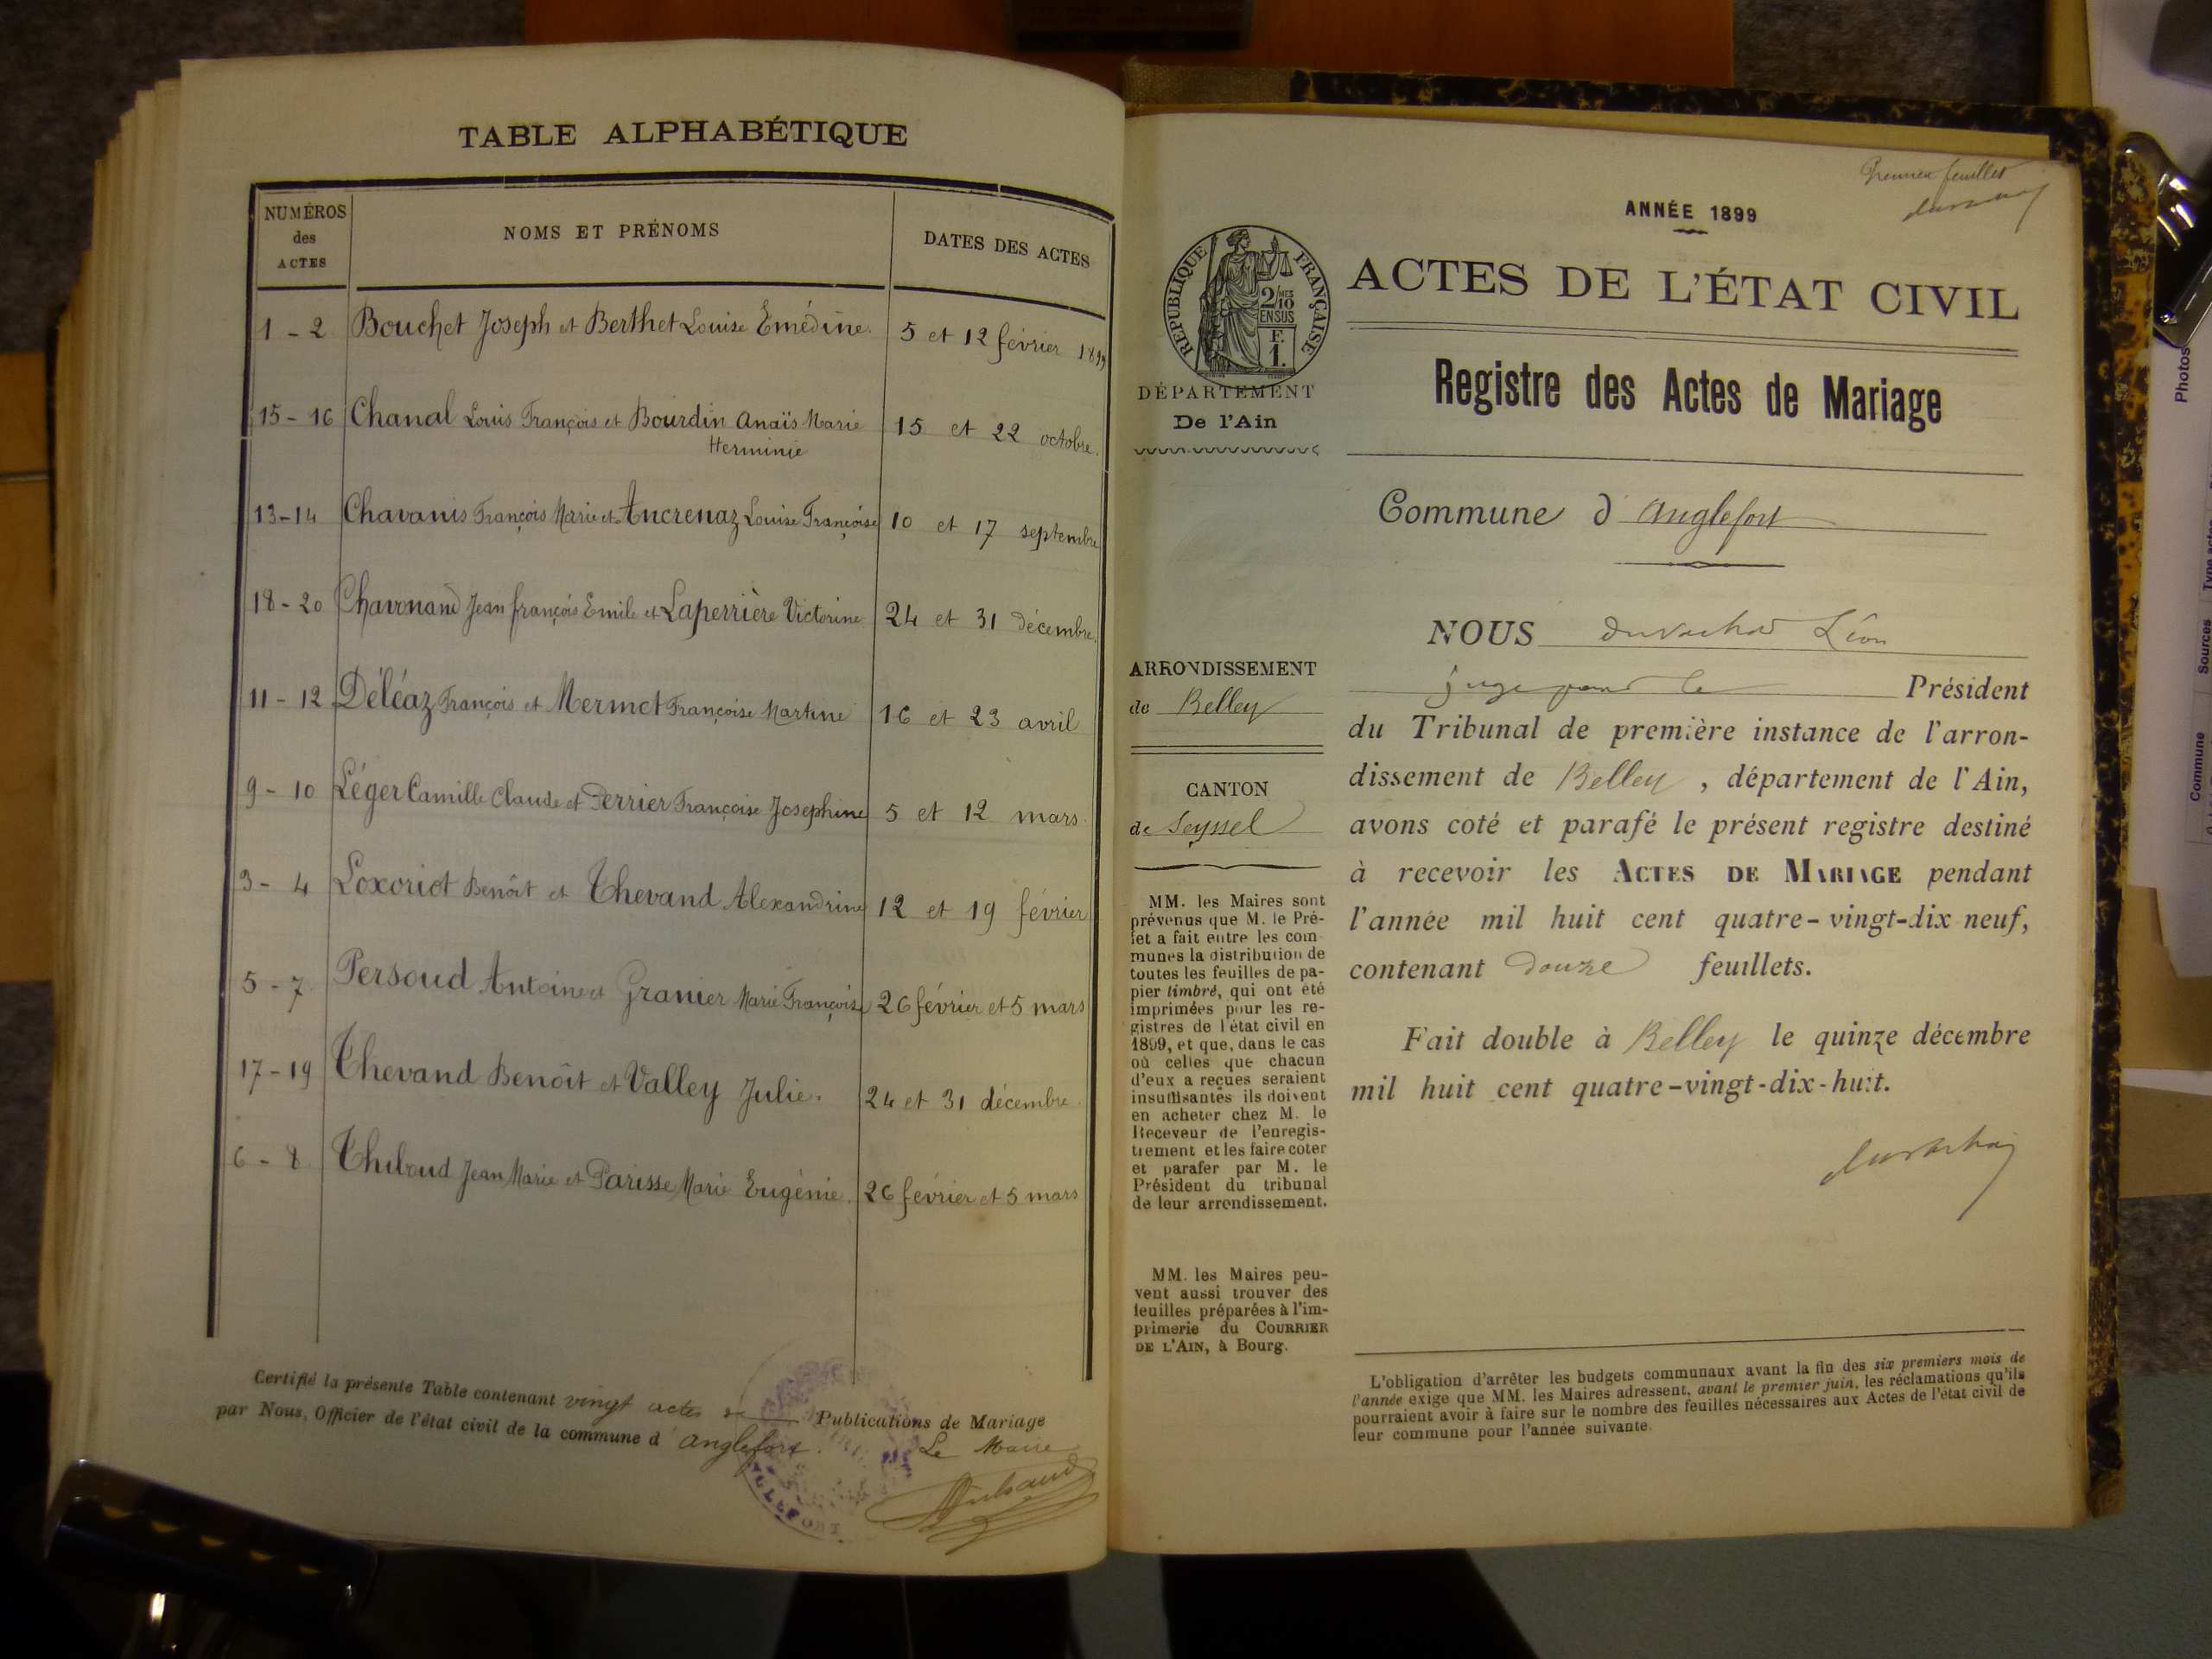 TABLE ALPHABÉTIQUE
NUMÉROS
des
ACTES
NOMS ET PRÉNOMS
DATES DES ACTES
1 - 2 Bouchet Joseph et Berthet Louise Emédine. 5 et 12 février 1899
15 - 16 Chanal Louis François et Bourdin Anaïs Marie 15 et 22 octobre.
Herminie
13 - 14 Chavanis François Marie et Ancrenaz Louise Françoise 10 et 17 septembre
18 - 20 Chavonand Jean françois Emile et Laperrière Victorine 24 et 31 décembre.
11 - 12 Déléaz François et Mermet Françoise Martine 16 et 23 avril
9 - 10 Léger Camille Claude et Perrier Françoise Josephine 5 et 12 mars.
3 - 4 Loxoriot Benôit et Thevand Alexandrine 12 et 19 février
5 - 7. Persoud Antoine et Granier Marie Françoise 26 février et 5 mars
17 - 19 Thevand Benôit et Valley Julie. 24 et 31 décembre.
6 - 8. Thiboud Jean Marie et Parisse Marie Eugénie. 26 février et 5 mars
Certifié la présente Table contenant vingt actes de Publications de Mariage
par Nous, Officier de l'état civil de la commune d'anglefort.
Le Maire
Premier feuillet
ANNÉE 1899
RÉPUBLIQUE FRANÇAISE
2/10 MES
EN SUS
F.
1.
ACTES DE L'ÉTAT CIVIL
DÉPARTEMENT
De l'Ain
Registre des Actes de Mariage
Commune d'anglefort
ARRONDISSEMENT
de Belley
CANTON
de Seyssel
MM. les Maires sont
prévenus que M. le Pré-
fet a fait entre les com
munes la distribution de
toutes les feuilles de pa-
pier timbré, qui ont été
imprimées pour les re-
gistres de l'état civil en
1899, et que, dans le cas
où celles que chacun
d'eux a reçues seraient
insuffisantes ils doivent
en acheter chez M. le
Receveur de l'enregis-
trement et les faire coter
et parafer par M. le
Président du tribunal
de leur arrondissement.
MM. les Maires peu-
vent aussi trouver des
feuilles préparées à l'im-
primerie du COURRIER
DE L'AIN, à Bourg.
NOUS Léon
juge pour le Président
du Tribunal de première instance de l'arron-
dissement de Belley, département de l'Ain,
avons coté et parafé le présent registre destiné
à recevoir les ACTES DE MARIAGE pendant
l'année mil huit cent quatre-vingt-dix neuf,
contenant douze feuillets.
Fait double à Belley le quinze décembre
mil huit cent quatre-vingt-dix-huit.
L'obligation d'arrêter les budgets communaux avant la fin des six premiers mois de
l'année exige que MM. les Maires adressent, avant le premier juin, les réclamations qu'ils
pourraient avoir à faire sur le nombre des feuilles nécessaires aux Actes de l'état civil de
leur commune pour l'année suivante.
Photos
Type actes
Sources
Commune